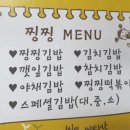 찡찡 MENU
♥찡찡김밥 ♥김치김밥
♥깻잎김밥 ♥참치김밥
♥야채김밥 ♥찡찡떡볶이
♥스페셜김밥(대,중,소)